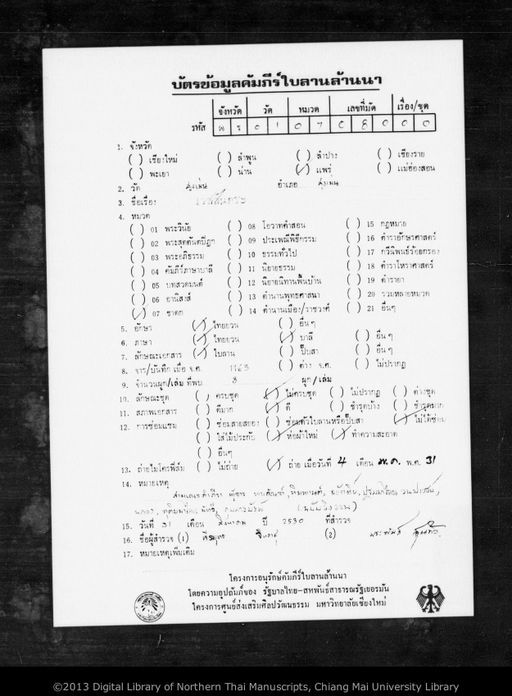 บัตรข้อมูลคัมภีร์ใบลานล้านนา
จังหวัด วัด หมวด เลขที่มัด เรื่อง/ชุด
รหัส พ ร 0 1 0 7 0 8 0 0 0
1. จังหวัด
( ) เชียงใหม่ ( ) ลำพูน ( ) ลำปาง ( ) เชียงราย
( ) พะเยา ( ) น่าน (✓) แพร่ ( ) แม่ฮ่องสอน
2. วัด สูงเม่น อำเภอ สูงเม่น
3. ชื่อเรื่อง
4. หมวด
( ) 01 พระวินัย ( ) 08 โอวาทคำสอน ( ) 15 กฎหมาย
( ) 02 พระสุตตันตปิฎก ( ) 09 ประเพณีพิธีกรรม ( ) 16 ตำราอักษรศาสตร์
( ) 03 พระอภิธรรม ( ) 10 ธรรมทั่วไป ( ) 17 กวีนิพนธ์ร้อยกรอง
( ) 04 คัมภีร์ภาษาบาลี ( ) 11 นิยายธรรม ( ) 18 ตำราโหราศาสตร์
( ) 05 บทสวดมนต์ ( ) 12 นิยายนิทานพื้นบ้าน ( ) 19 ตำรายา
( ) 06 อานิสงส์ ( ) 13 ตำนานพุทธศาสนา ( ) 20 รวมหลายหมวด
(✓) 07 ชาดก ( ) 14 ตำนานเมือง/ราชวงศ์ ( ) 21 อื่นๆ
5. อักษร (✓) ไทยยวน ( ) อื่นๆ
6. ภาษา (✓) ไทยยวน (✓) บาลี ( ) อื่นๆ
7. ลักษณะเอกสาร (✓) ใบลาน ( ) ปั๊บสา ( ) อื่นๆ
8. จาร/บันทึก เมื่อ จ.ศ. 1165 ( ) ค่าง จ.ศ. ( ) ไม่ปรากฏ
9. จำนวนผูก/เล่ม ที่พบ 8 ผูก/เล่ม
10. ลักษณะชุด ( ) ครบชุด (✓) ไม่ครบชุด ( ) ไม่ปรากฏ ( ) ต่างชุด
11. สภาพเอกสาร ( ) ดีมาก (✓) ดี ( ) ชำรุดบ้าง ( ) ชำรุดมาก
12. การซ่อมแซม ( ) ซ่อมสายสยอง ( ) ซ่อมตัวใบลานหรือปั๊บสา (✓) ไม่ได้ซ่อม
( ) ใส่ไม้ประกับ (✓) ห่อผ้าใหม่ (✓) ทำความสะอาด
( ) อื่นๆ
13. ถ่ายไมโครฟิล์ม ( ) ไม่ถ่าย (✓) ถ่าย เมื่อวันที่ 4 เดือน พ.ค. พ.ศ. 31
14. หมายเหตุ
15. วันที่ 31 เดือน ปี 2530 ที่สำรวจ
16. ชื่อผู้สำรวจ (1) (2)
17. หมายเหตุเพิ่มเติม
โครงการอนุรักษ์คัมภีร์ใบลานล้านนา
โดยความอุปถัมภ์ของ รัฐบาลไทย-สหพันธ์สาธารณรัฐเยอรมัน
โครงการศูนย์ส่งเสริมศิลปวัฒนธรรม มหาวิทยาลัยเชียงใหม่
©2013 Digital Library of Northern Thai Manuscripts, Chiang Mai University Library